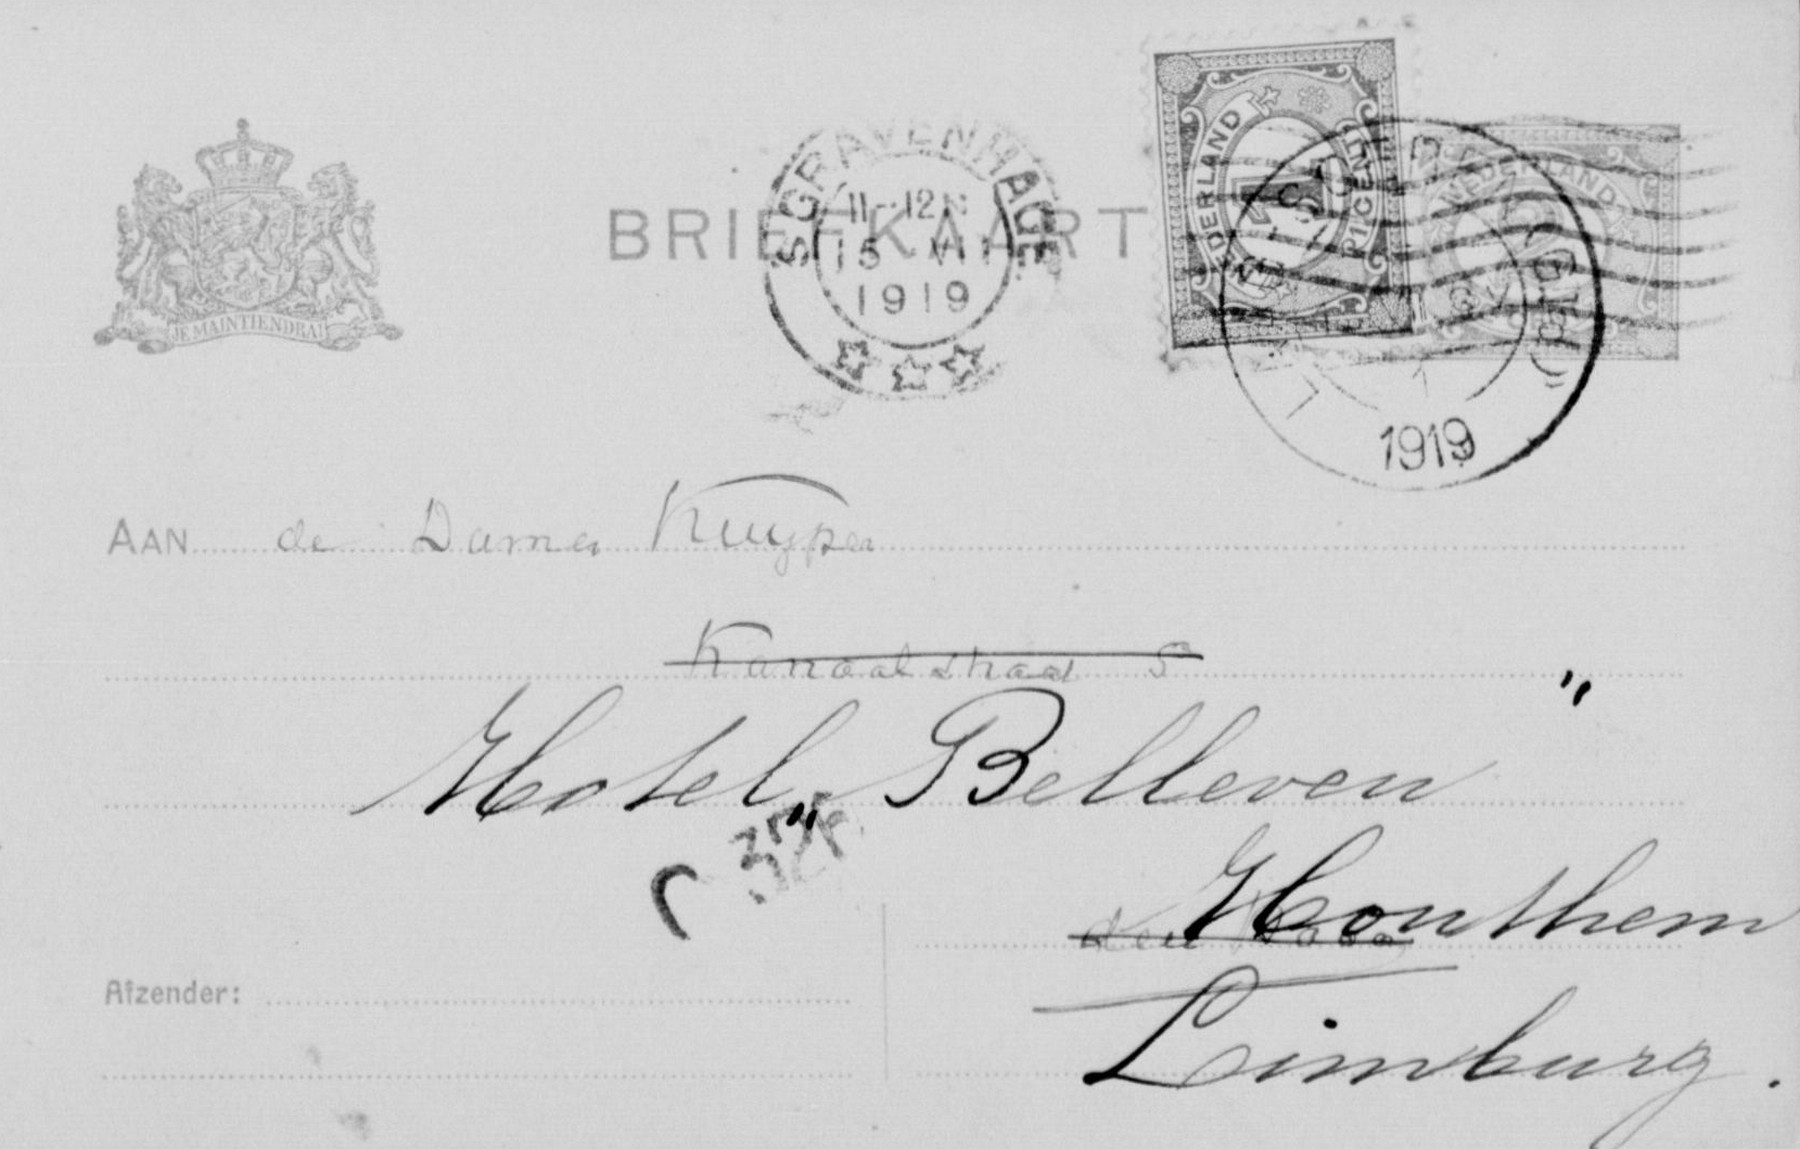 JE MAINTIENDRAI
BRIEFKAART
'S GRAVENHAGE
11-12
15 VI
1919
NEDERLAND
1 CENT
NEDERLAND
1919
AAN de Dames Kuyper
Kanaalstraat 5
Hotel „Belleven"
den Haag
Houthem
Limburg.
Afzender: